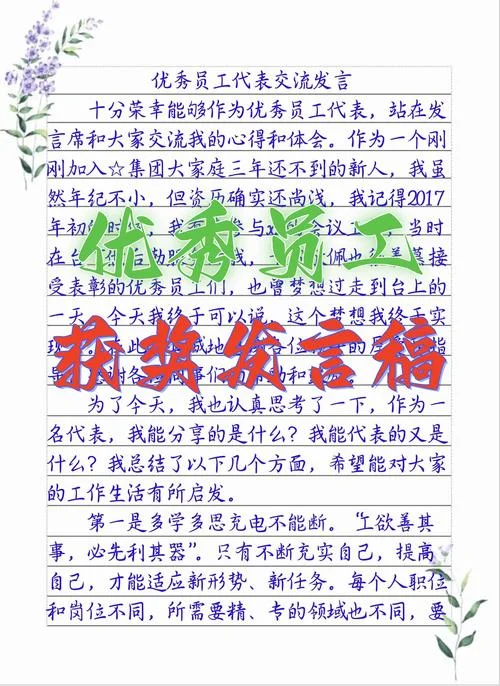 优秀员工代表交流发言
十分荣幸能够作为优秀员工代表，站在发
言席和大家交流我的心得和体会。作为一个刚
刚加入☆集团大家庭三年还不到的新人，我虽
然年纪不小，但资历确实还尚浅，我记得2017
年初的时候，我
参与
会议
当时
在台下
优秀员工
接
受表彰的优秀员工们，也曾梦想过走到台上的
一天，今天我终于可以说，这个梦想我终于实
现
获奖发言稿
为了今天，我也认真思考了一下，作为一
名代表，我能分享的是什么？我能代表的又是
什么？我总结了以下几个方面，希望能对大家
的工作生活有所启发。
第一是多学多思充电不能断。“工欲善其
事，必先利其器”。只有不断充实自己，提高
自己，才能适应新形势、新任务。每个人职位
和岗位不同，所需要精、专的领域也不同，要